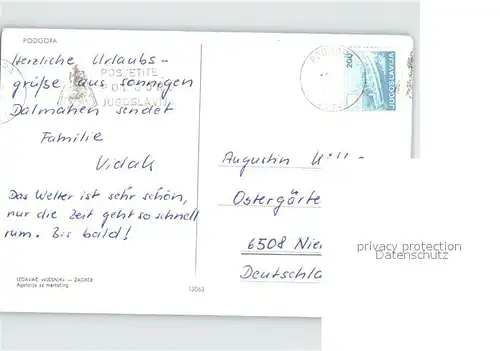 PODGORA
Herzliche Urlaubs-
grüße aus sonnigen
Dalmatien sendet
Familie
Vidak
Das Wetter ist sehr schön,
nur die Zeit geht so schnell
rum. Bis bald!
POSJETITE
JUGOSLAVIJA
200
JUGOSLAVIJA
Augustin
Ostergärte
6508
Deutschla
privacy protection
Datenschutz
IZDAVAČ »VJESNIK« — ZAGREB
Agencija za marketing
13063